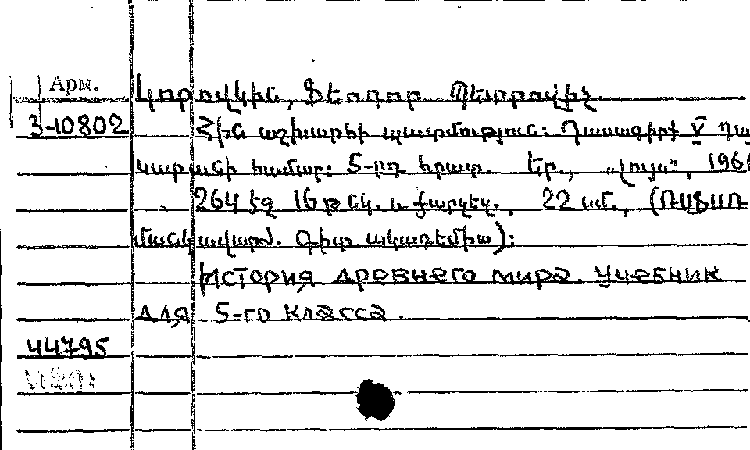 Арм.
Կորովկին, Ֆեոդոր Պետրովիչ.
3-10802
Հին աշխարհի պատմություն: Դասագիրք V դա
սարանի համար: 5-րդ հրատ. Եր., „Լույս“, 1966
264 էջ 16 թ. նկ. և քարտեզ., 22 սմ., (ՌՍՖՍՌ
մանկավարժ. գիտ. ակադեմիա):
История древнего мира. Учебник
для 5-го класса.
44795